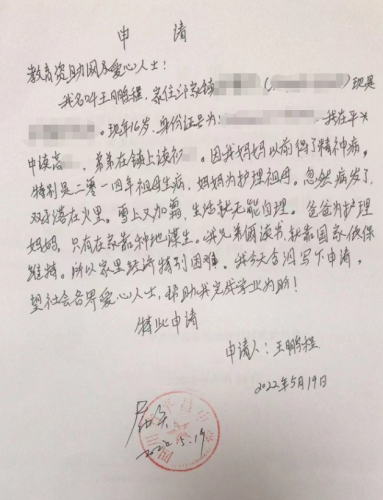 申 请
教育资助网及爱心人士:
我名叫王鹏程,家住江家镇 ( 现是
。现年16岁,身份证号为: 我在平
中读高 弟弟在镇上读初 。因我妈妈以前得了精神病。
特别是二零一四年祖母生病,妈妈为护理祖母。忽然病发了,
双手落在火里。雪上又加霜,生活就无能自理。爸爸为护理
妈妈,只有在家靠种地谋生。我兄弟俩读书,就靠国家低保
维持。所以家里经济特别困难。我今天含泪写下申请,
望社会各界爱心人士,帮助我完成学业为盼!
特此申请
申请人:王鹏程
2022年5月19日
属实
2022.5.19